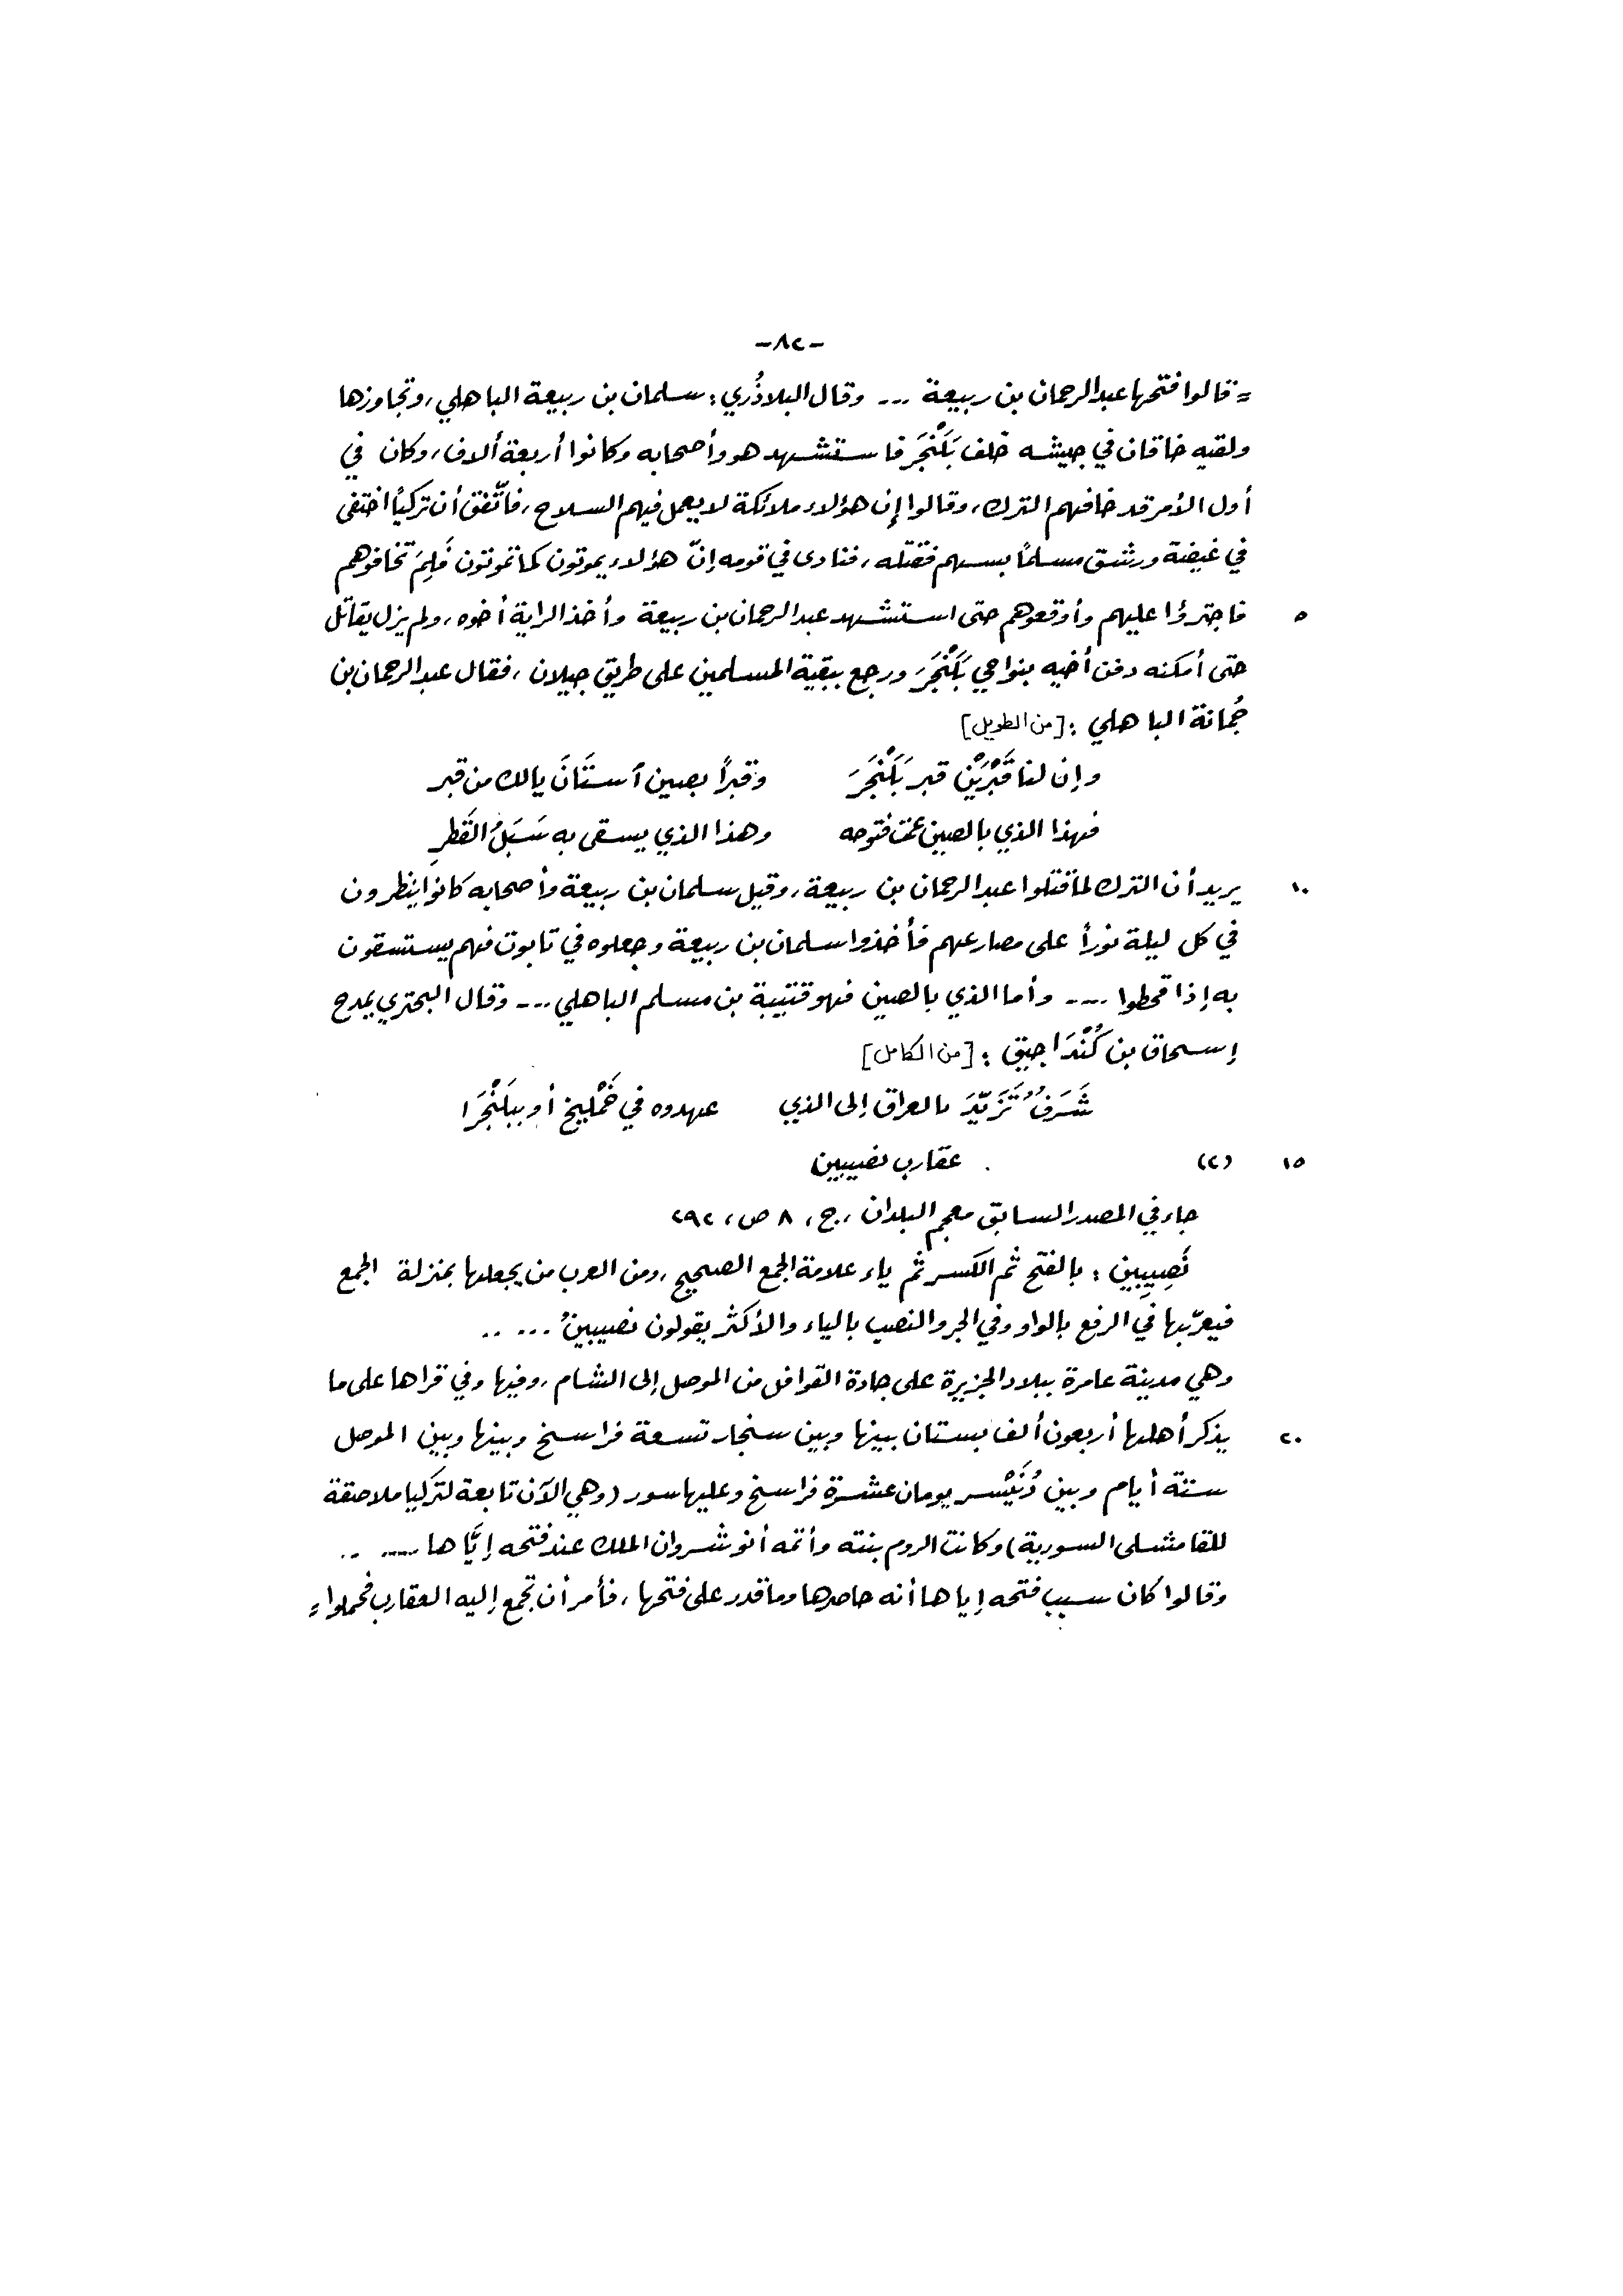 -٨٢-
= قالوا فتحها عبد الرحمان بن ربيعة ... وقال البلاذُري: سلمان بن ربيعة الباهلي، وتجاوزها
ولقيه خاقان في جيشه خلف بَلَنْجَر فاستشهد هو وأصحابه وكانوا أربعة ألاف، وكان في
أول الأمر قد خافهم الترك، وقالوا إن هؤلاء ملائكة لا يعمل فيهم السلاح، فاتّفق أن تركياً اختفى
في غيضة ورشق مسلماً بسهم فقتله، فنادى في قومه إنّ هؤلاء يموتون كما تموتون فَلِمَ تخافوهم
٥ فاجترؤا عليهم وأوقعوهم حتى استشهد عبد الرحمان بن ربيعة وأخذ الراية أخوه، ولم يزل يقاتل
حتى أمكنه دفن أخيه بنواحي بَلَنْجَرَ ورجع ببقية المسلمين على طريق جيلان، فقال عبد الرحمان بن
جُمانة الباهلي: [من الطويل]
وإن لنا قَبْرَيْن قبر بَلَنْجَرَ وقبراً بصين آستَانَ يالك من قبر
فهذا الذي بالصين عمّت فتوحه وهذا الذي يسقى به سَبَلُ القَطرِ
١٠ يريد أن الترك لما قتلوا عبد الرحمان بن ربيعة، وقيل سلمان بن ربيعة وأصحابه كانوا ينظرون
في كل ليلة نوراً على مصارعهم فأخذوا سلمان بن ربيعة وجعلوه في تابوت فهم يستسقون
به إذا قحطوا .... وأما الذي بالصين فهو قتيبة بن مسلم الباهلي ... وقال البحتري يمدح
إسحاق بن كُنْدَاجيق: [من الكامل]
شَرَفٌ تَزَيّدَ بالعراق إلى الذي عهدوه في خَمْليخ أو ببَلَنْجَرَا
١٥ (٢) عقارب نصيبين
جاء في المصدر السابق معجم البلدان، ج، ٨ ص، ٢٩٢
نَصِيبِين: بالفتح ثم الكسر ثم ياء علامة الجمع الصحيح، ومن العرب من يجعلها بمنزلة الجمع
فيعرّبها في الرفع بالواو وفي الجر والنصب بالياء والأكثر يقولون نصيبينُ .....
وهي مدينة عامرة ببلاد الجزيرة على جادة القوافل من الموصل إلى الشام، وفيها وفي قراها على ما
٢٠ يذكر أهلها أربعون ألف بستان بينها وبين سنجار تسعة فراسخ وبينها وبين الموصل
ستة أيام وبين دُنَيْسر يومان عشرة فراسخ وعليها سور (وهي الآن تابعة لتركيا ملاصقة
للقامشلي السورية) وكانت الروم بنته وأتمه أنوشروان الملك عند فتحه إيّاها ......
وقالوا كان سبب فتحه إياها أنه حاصرها وما قدر على فتحها، فأمر أن تجمع إليه العقارب فحملوا =